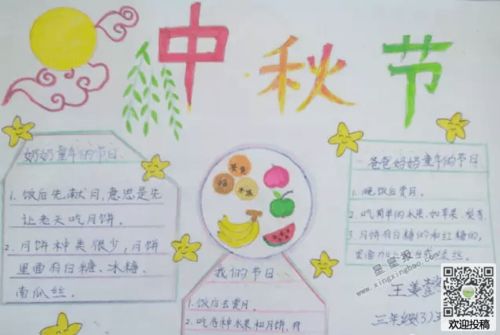 中秋节
奶奶童年的节日
1. 饭后先献月,意思是先
让老天吃月饼。
2. 月饼种类很少,月饼
里面有白糖、冰糖、
南瓜丝。
我们的节日
1. 饭后去赏月。
2. 吃各种水果和月饼,月
爸爸妈妈童年的节日
1. 晚饭后赏月。
2. 吃简单的水果,如苹果、梨等
3. 月饼有白糖的和红糖的,
里面
王姜
三年级(3)
欢迎投稿